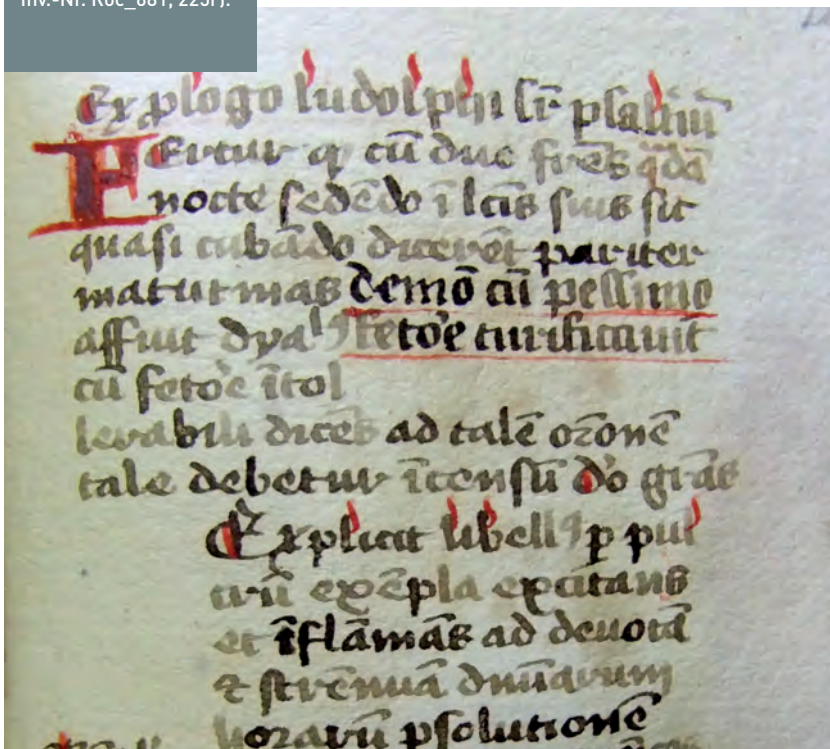 Inv.-Nr. Roc_881, 225r).
Ex plogo ludolphi sr̄ psaltiū
Fertur q cū duo fr̄es q̄dā
nocte sedēdo ī lcīs suis sic
quasi cubādo dicerēt pariter
matutinas demō cū pessimo
affuit dya fetoe turificauit
cū fetoe ītol
lerabili dicēs ad talē or̄onē
tale debetur īcensū do gr̄as
Explicit libell p pul
crū exēpla excitans
et īflāmās ad deuotā
et strēnuā diuīarum
horarū psolutionē